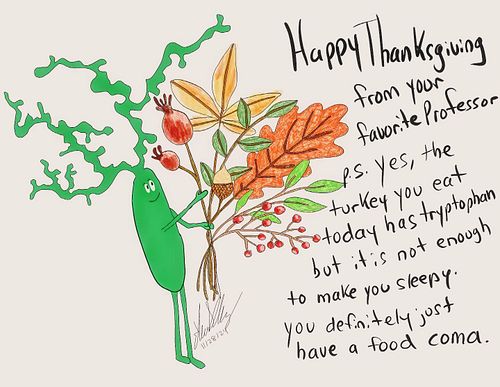 Happy Thanksgiving
from your
favorite Professor
p.s. yes, the
turkey you eat
today has tryptophan
but it is not enough
to make you sleepy.
you definitely just
have a food coma.
11/28/24